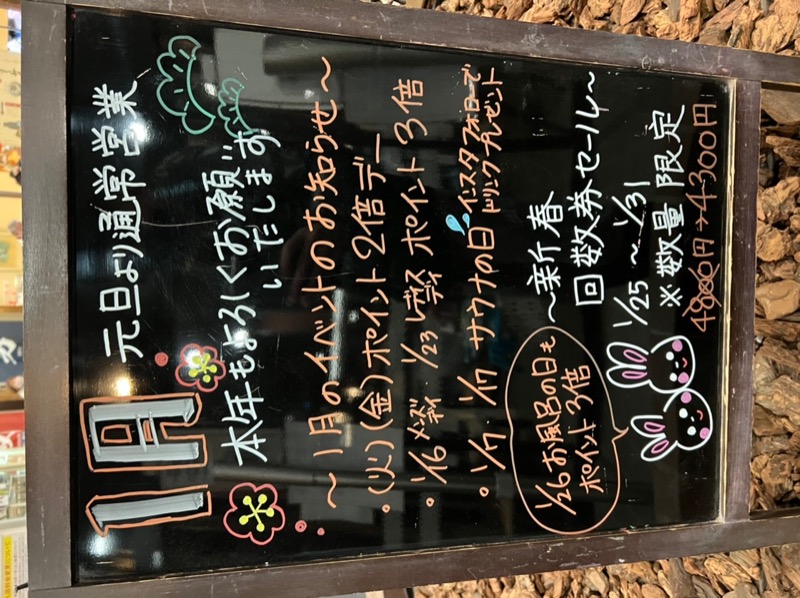 1月
元旦より通常営業
本年もよろしくお願い
いたします
～1月のイベントのお知らせ～
・(火)(金)ポイント2倍デー
・1/16 メンズデイ・1/23 レディスデイ ポイント3倍
・1/7・1/17 サウナの日 インスタフォローで
ドリンクプレゼント
1/26お風呂の日も
ポイント3倍
～新春
回数券セール～
1/25～1/31
※数量限定
4800円→4300円